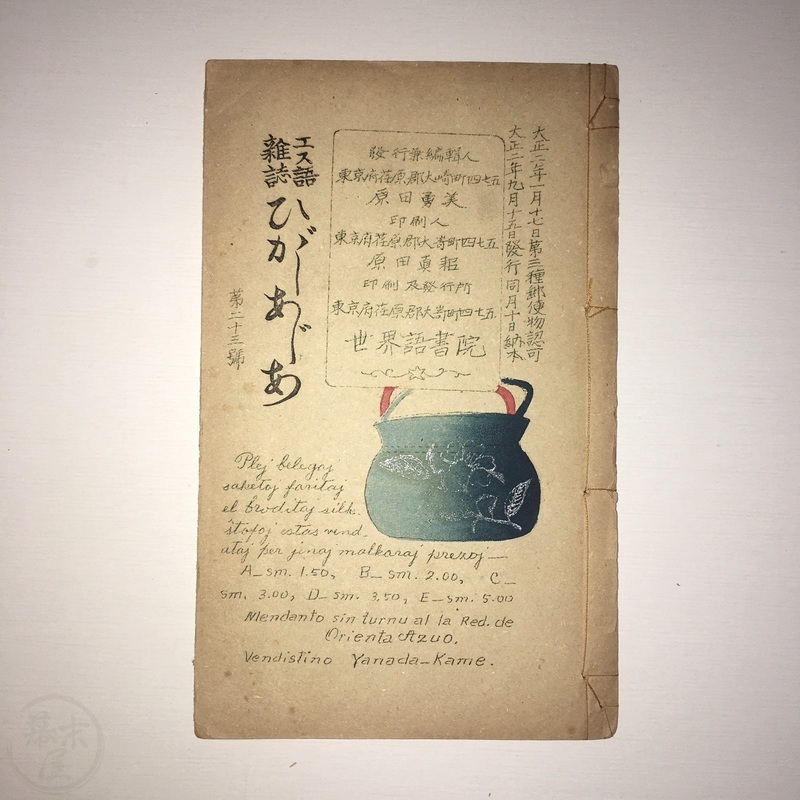 大正二年一月十七日第三種郵便物認可
大正二年九月十五日發行同月十日納本
發行兼編輯人
東京府荏原郡大崎町四七五
原田勇美
印刷人
東京府荏原郡大嵜町四七五
原田眞韶
印刷及發行所
東京府荏原郡大嵜町四七五
世界語書院
エス語
雜誌
ひがしあじあ
第二十三號
Plej belegaj
saketoj faritaj
el broditaj silk-
ŝtofoj estas vend-
ataj per jenaj malkaraj prezoj—
A—sm. 1.50, B—sm. 2.00, C—
sm. 3.00, D—sm. 3.50, E—sm. 5.00
Mendanto sin turnu al la Red. de
Orienta Azuo.
Vendistino Yanada-Kame.